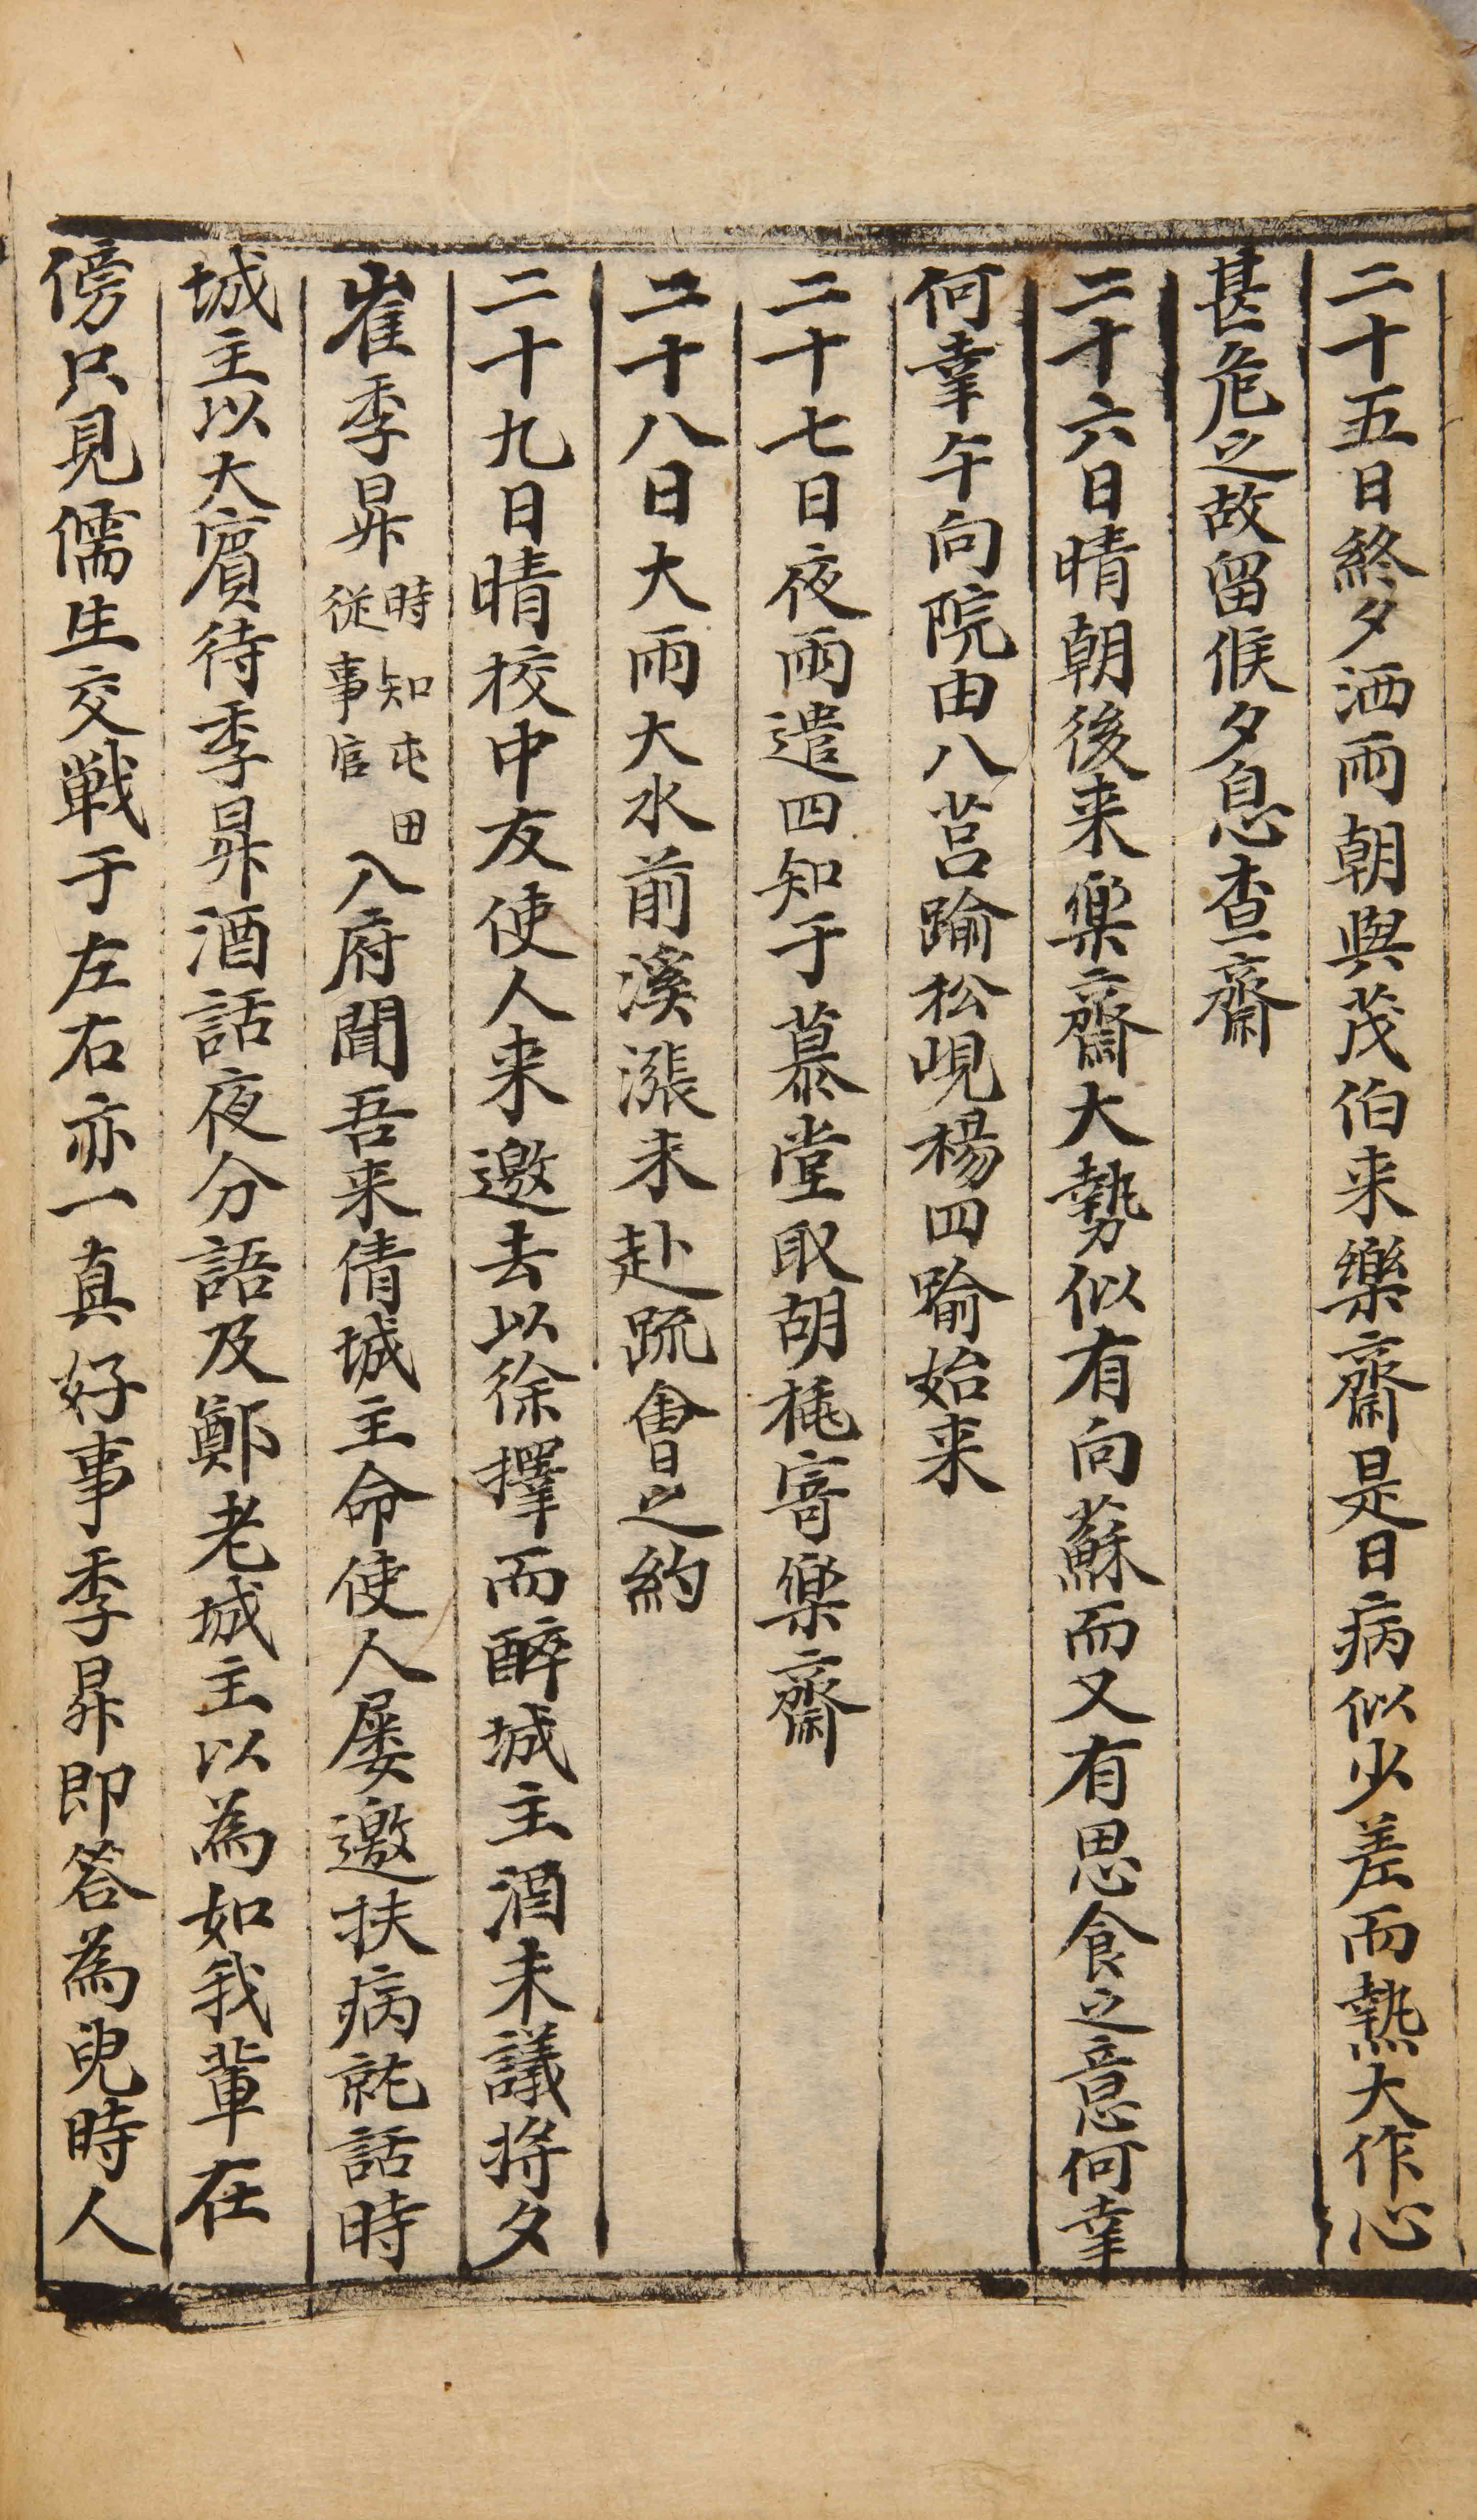 二十五日終夕洒雨朝與茂伯来樂齋是日病似少差而熱大作心
甚危之故留候夕息查齋
二十六日晴朝後来樂齋大勢似有向蘇而又有思食之意何幸
何幸午向院由八莒踰松峴楊四踰始来
二十七日夜雨遣四知于慕堂取胡桃寄樂齋
二十八日大雨大水前溪漲未赴疏會之約
二十九日晴校中友使人来邀去以徐擇而醉城主酒未議将夕
崔季昇時知屯田従事官入府聞吾来倩城主命使人屡邀扶病就話時
城主以大賓待季昇酒話夜分語及鄭老城主以為如我輩在
傍只見儒生交戦于左右亦一真好事季昇即答為兒時人